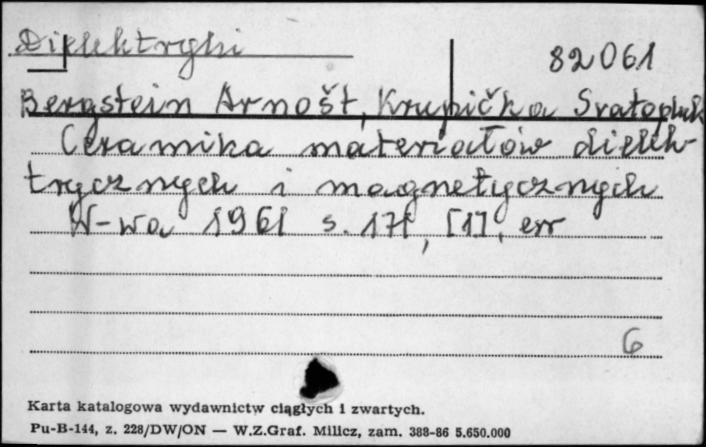 Dielektryki
82061
Bergstein Arnošt, Krupička Svatopluk
Ceramika materiałów dielek-
trycznych i magnetycznych
W-wa 1961 s. 171, [1], err
6
Karta katalogowa wydawnictw ciągłych i zwartych.
Pu-B-144, z. 228/DW/ON — W.Z.Graf. Milicz, zam. 388-86 5.650.000